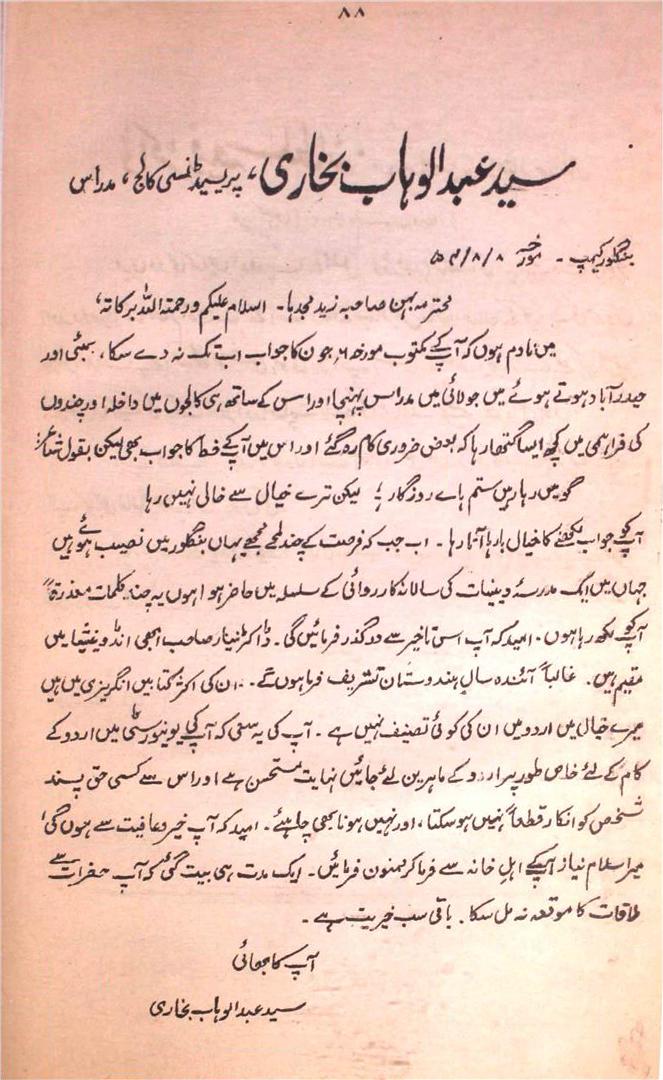 ۸۸
سید عبدالوہاب بخاری، پریسیڈنسی کالج، مدراس
بنگلور کیمپ - مورخہ ۸/۸/۵۴
محترمہ بہن صاحبہ زید مجدہا - اسلام علیکم ورحمتہ اللہ برکاتہ،
میں نادم ہوں کہ آپ کے مکتوب مورخہ ۶ر جون کا جواب اب تک نہ دے سکا، بمبئی اور
حیدرآباد ہوتے ہوئے میں جولائی میں مدراس پہنچا اور اس کے ساتھ ہی کالجوں میں داخلہ اور چندوں
کی فراہمی میں کچھ ایسا گتھا رہا کہ بعض ضروری کام رہ گئے اور اس میں آپ کے خط کا جواب بھی لیکن بقول شاعر:
گو میں رہا رہین ستم ہاے روزگار ؛ لیکن ترے خیال سے خالی نہیں رہا
آپ کو جواب لکھنے کا خیال بارہا آتا رہا - اب جب کہ فرصت کے چند لمحے مجھے یہاں بنگلور میں نصیب ہوئے ہیں
جہاں میں ایک مدرسۂ دینیات کی سالانہ کارروائی کے سلسلہ میں حاضر ہوا ہوں یہ چند کلمات معذرۃً
آپ کو لکھ رہا ہوں. امید کہ آپ اس تاخیر سے درگذر فرمائیں گی. ڈاکٹر نینار صاحب ابھی انڈونیشیا میں
مقیم ہیں. غالباً آئندہ سال ہندوستان تشریف فرما ہوں گے. ان کی اکثر کتابیں انگریزی میں ہیں
میرے خیال میں اردو میں ان کی کوئی تصنیف نہیں ہے. آپ کی یہ سعی کہ آپ کی یونیورسٹی میں اردو کے
کام کے لئے خاص طور پر اردو کے ماہرین لئے جائیں نہایت مستحسن ہے اور اس سے کسی حق پسند
شخص کو انکار قطعاً نہیں ہوسکتا، اور نہیں ہونا بھی چاہئے. امید کہ آپ خیر و عافیت سے ہوں گی،
میرا سلام نیاز آپ کے اہلِ خانہ سے فرما کر ممنون فرمائیں. ایک مدت ہی بیت گئی کہ آپ حضرات سے
ملاقات کا موقعہ نہ مل سکا. باقی سب خیریت ہے.
آپ کا بھائی
سید عبدالوہاب بخاری